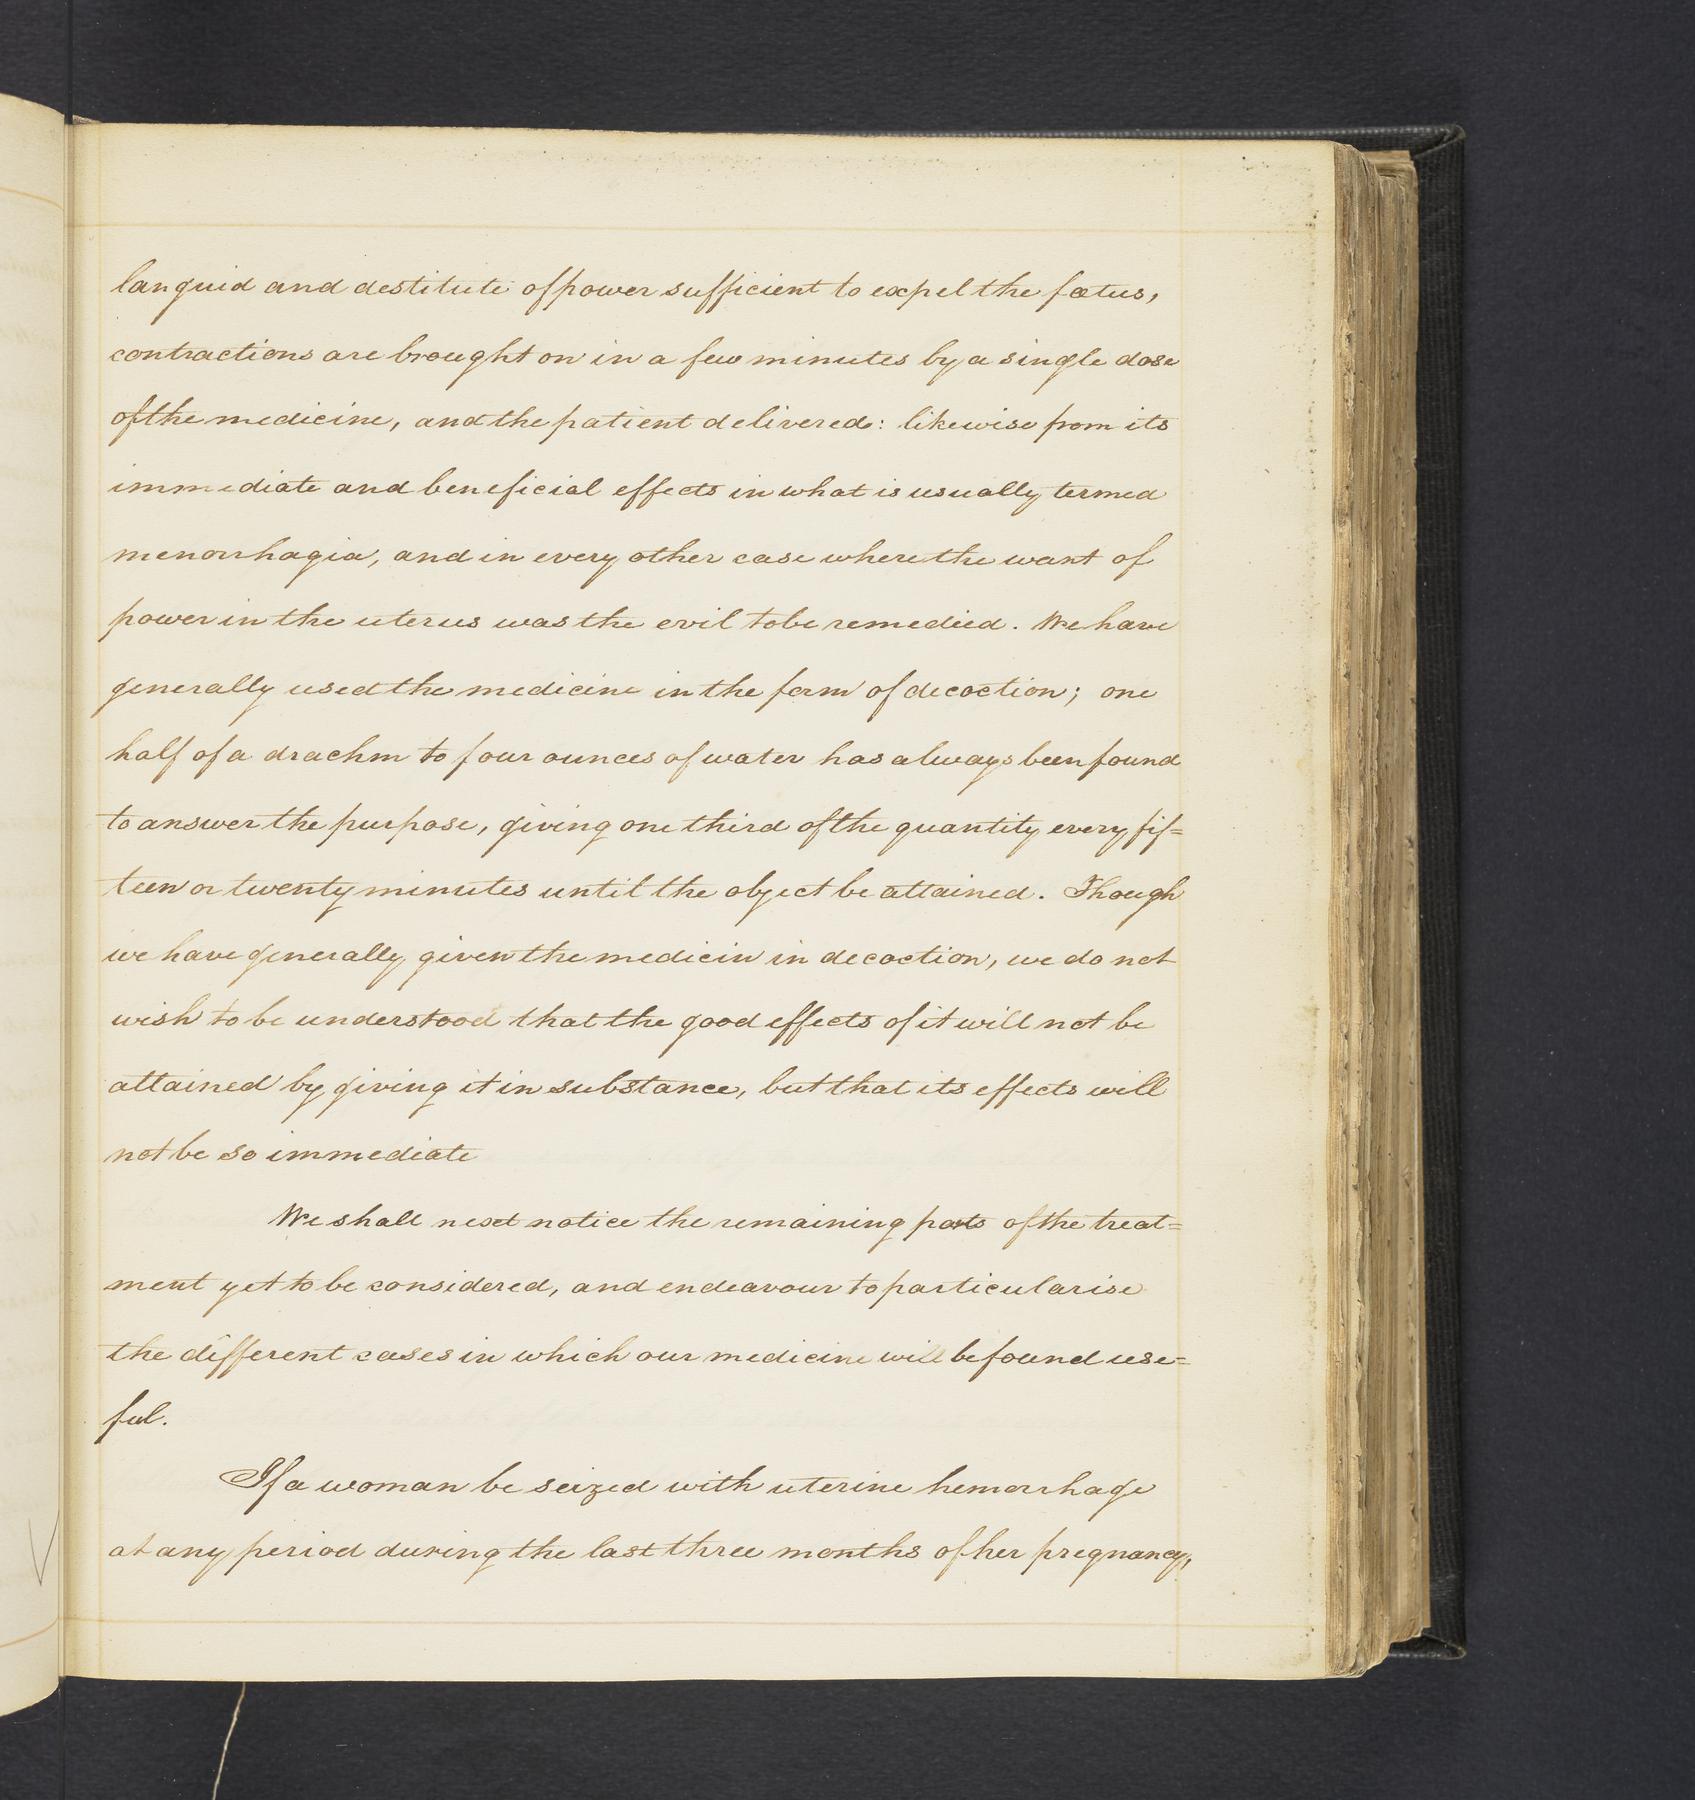 languid and destitute of power sufficient to expel the fœtus,
contractions are brought on in a few minutes by a single dose
of the medicine, and the patient delivered: likewise from its
immediate and beneficial effects in what is usually termed
menorrhagia, and in every other case where the want of
power in the uterus was the evil to be remedied. We have
generally used the medicine in the form of decoction; one
half of a drachm to four ounces of water has always been found
to answer the purpose, giving one third of the quantity every fif=
teen or twenty minutes until the object be attained. Though
we have generally given the medicin in decoction, we do not
wish to be understood that the good effects of it will not be
attained by giving it in substance, but that its effects will
not be so immediate
We shall next notice the remaining parts of the treat=
ment yet to be considered, and endeavour to particularise
the different cases in which our medicine will be found use=
ful.
If a woman be seized with uterine hemorrhage
at any period during the last three months of her pregnancy,